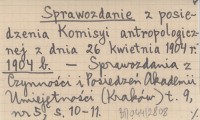 Sprawozdanie z posie-
dzenia Komisyi antropologicz-
nej z dnia 26 kwietnia 1904 r.
1904 b. — Sprawozdania z
Czynności i Posiedzeń Akademii
Umiejętności (Kraków) t. 9,
nr 5, s. 10-11.